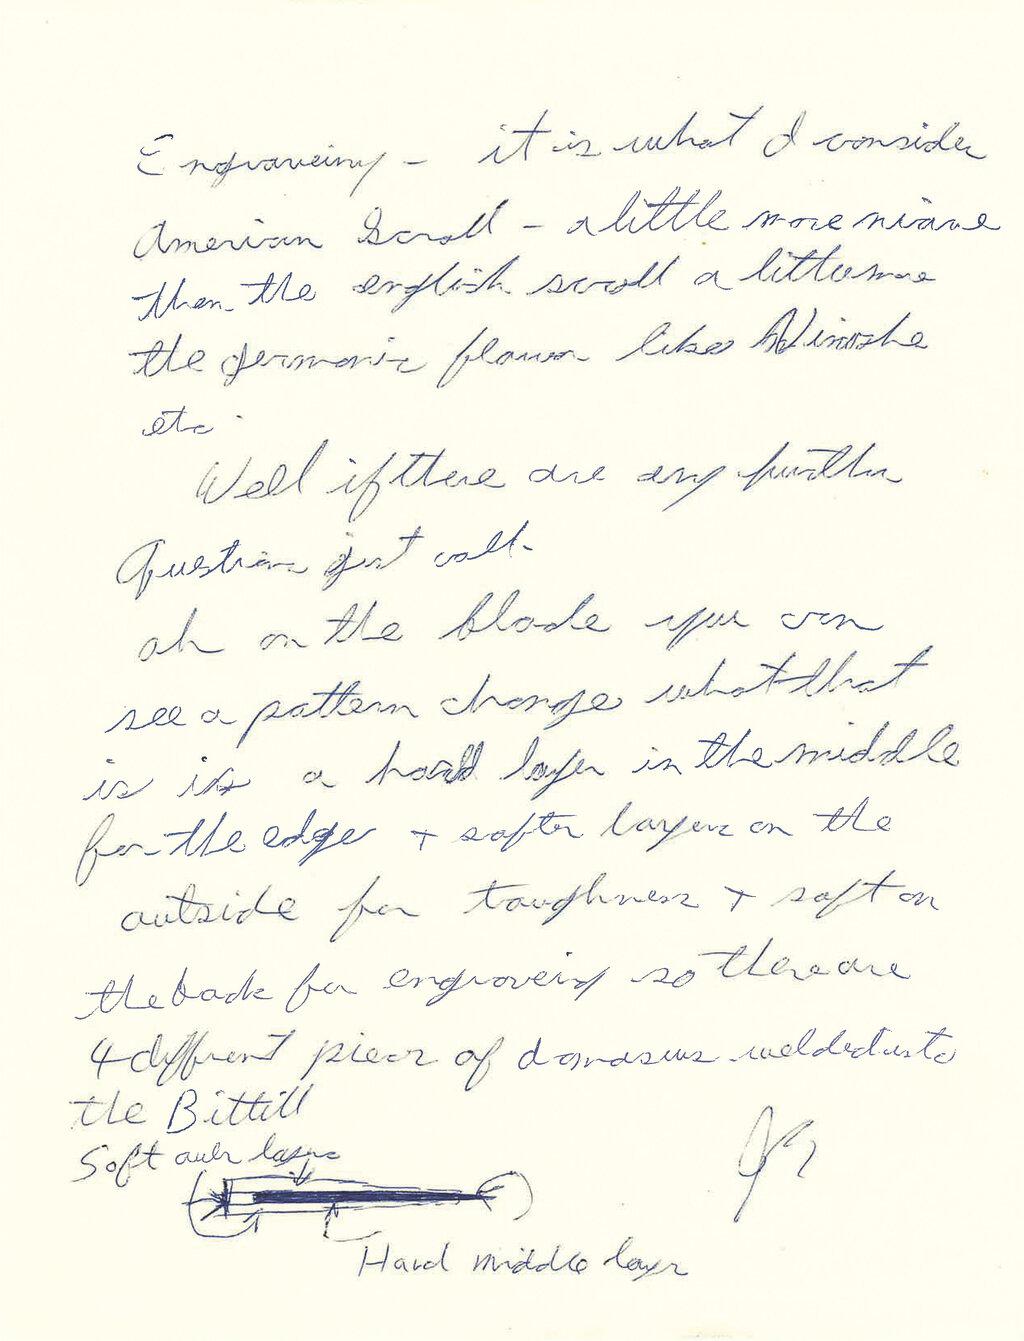 Engraveing - it is what I consider
American Scroll - a little more niave
then the english scroll a little more
the germanic flower like
etc.
Well if there are any further
Question just call.
oh on the blade you can
see a pattern change what that
is is a hard layer in the middle
for the edge + softer layers on the
outside for toughness + soft on
the back for engraveing so there are
4 different pieces of damascus welded into
the
Soft outer layers
Hard middle layer